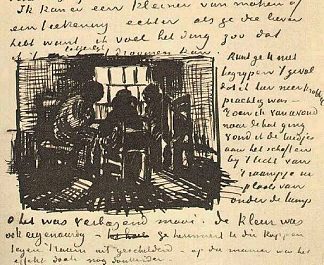 Ik kan er een kleiner van maken of
een teekening echter als ge die liever
hebt want ik voel het ding zoo dat
ik 't letterlijk droomen kan.
ge U niet
begrijpen 't geval
dat ik hier
prachtig was —
Toen ik van avond
naar de hut ging
vond ik de luidjes
aan het schaften
bij 't licht van
't raampje in
plaats van
onder de lamp
o het was verbazend mooi. de kleur was
ook eigenaardig — ge herinnert U die koppen
tegen 't raam uit geschilderd — op die manier was het
effekt doch nog donkerder.